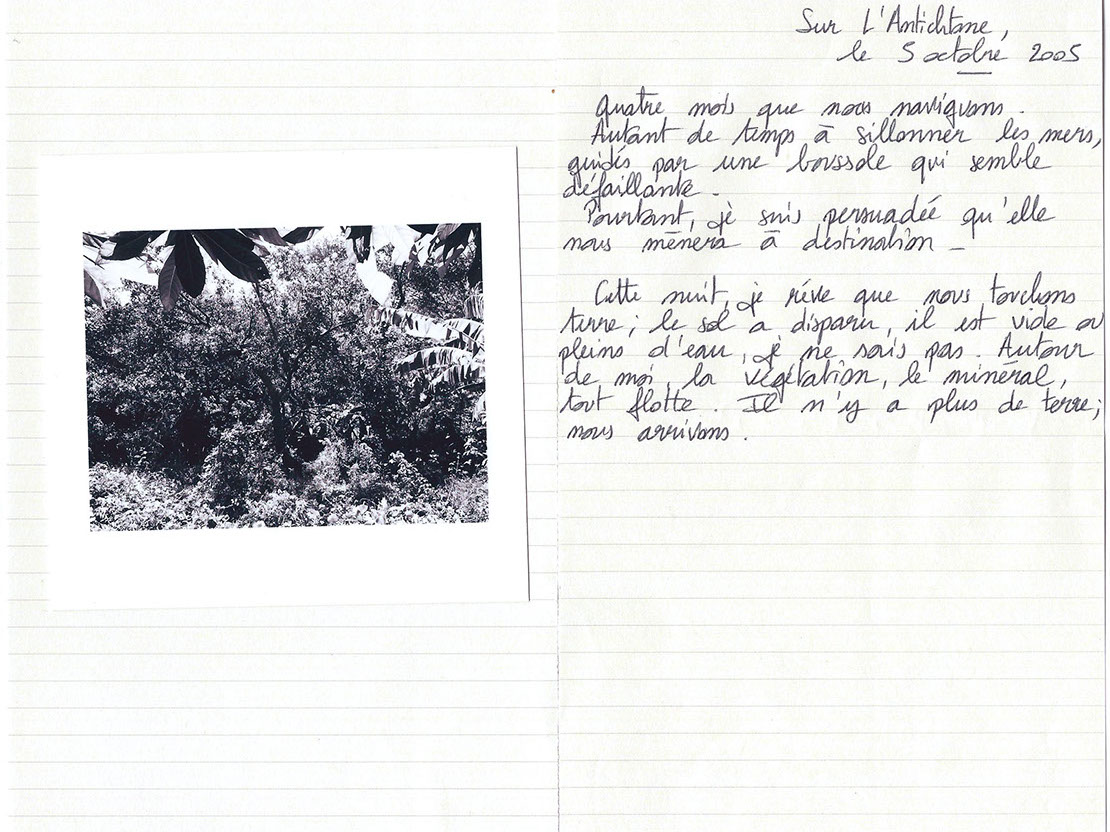 Sur L'Antichtone,
le 5 octobre 2005
Quatre mois que nous naviguons.
Autant de temps à sillonner les mers,
guidés par une boussole qui semble
défaillante.
Pourtant, je suis persuadée qu'elle
nous mènera à destination -
Cette nuit, je rêve que nous touchons
terre ; le sol a disparu, il est vide ou
pleins d'eau, je ne sais pas. Autour
de moi, la végétation, le minéral,
tout flotte. Il n'y a plus de terre ;
nous arrivons.